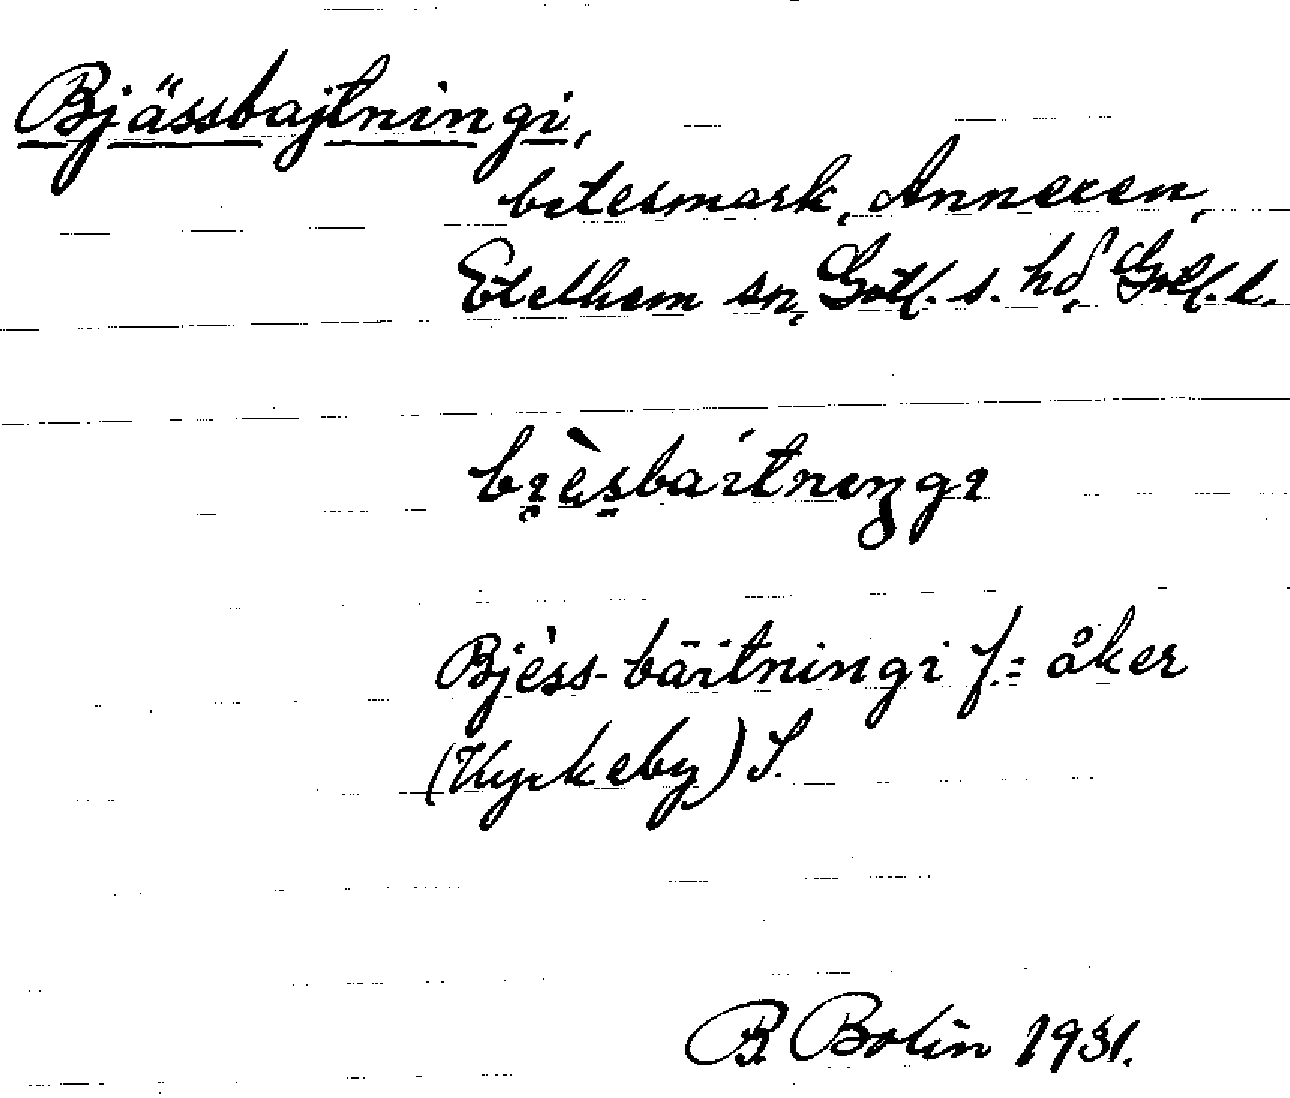 Bjässbajtningi,
betesmark, Annexen,
Etelhem sn, Gotl. s. hd, Gotl. l.
bi̯èsbaitniŋgi
Bjèss-bäitningi f. = åker
(Kyrkeby) S.
B Bolin 1931.